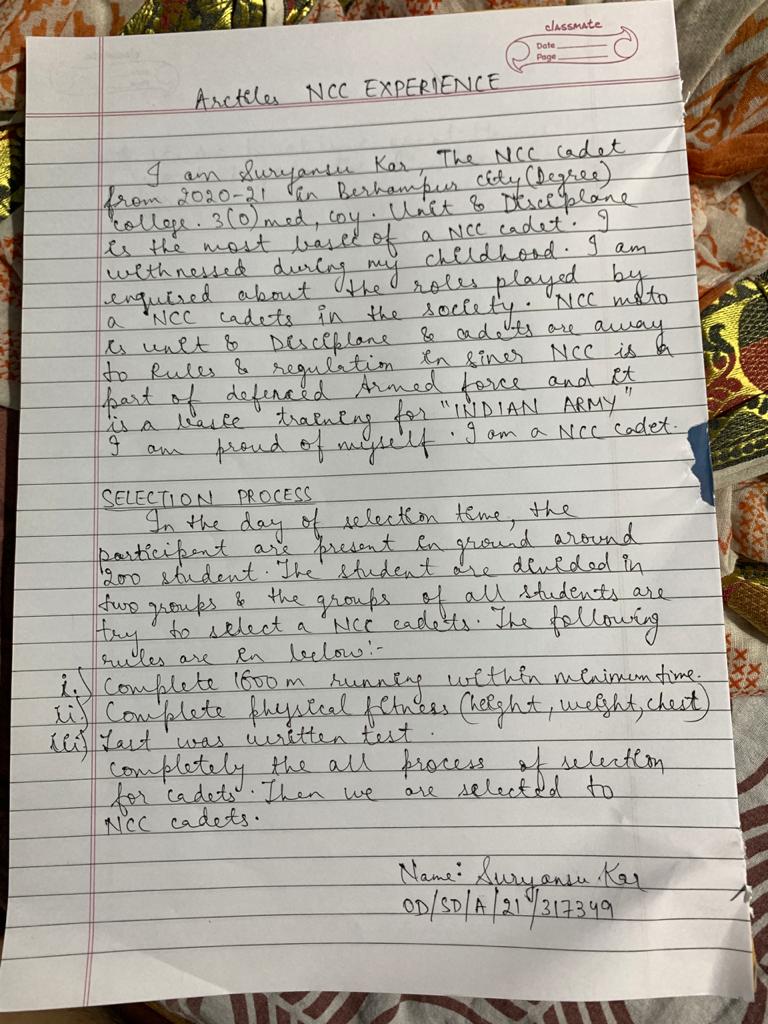 classmate
Date
Page
Arcticles NCC EXPERIENCE
I am Suryansu Kar, The NCC cadet
from 2020-21 in Berhampur city (Degree)
college. 3(O) med, coy. Unit & Disciplane
is the most basic of a NCC cadet. I
withnessed during my childhood. I am
enquired about the roles played by
a NCC cadets in the society. NCC moto
is unit & Disciplane & cadets are away
to Rules & regulation in siner NCC is a
part of defenced Armed force and it
is a basic training for "INDIAN ARMY"
I am proud of myself. I am a NCC cadet.
SELECTION PROCESS
In the day of selection time, the
participent are present in ground around
200 student. The student are divided in
two groups & the groups of all students are
try to select a NCC cadets. The following
rules are in below:-
i.) Complete 1600 m running within minimum time.
ii.) Complete physical fitness (height, weight, chest)
iii) Last was written test.
completely the all process of selection
for cadets. Then we are selected to
NCC cadets.
Name: Suryansu Kar
OD/SD/A/21/317349